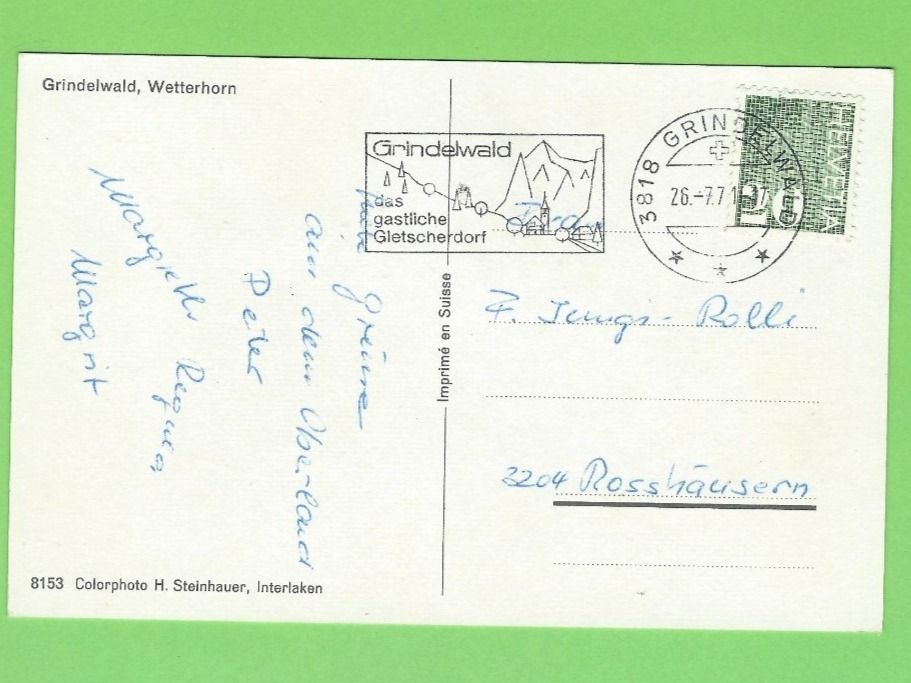 Grindelwald, Wetterhorn
Grindelwald
das
gastliche
Gletscherdorf
3818 GRINDELWALD
26.-7.71-
HELVETIA
10
Grüsse
aus dem Oberland
Peter
Margrit
Imprimé en Suisse
Frau
Rolli
3204 Rosshäusern
8153 Colorphoto H. Steinhauer, Interlaken